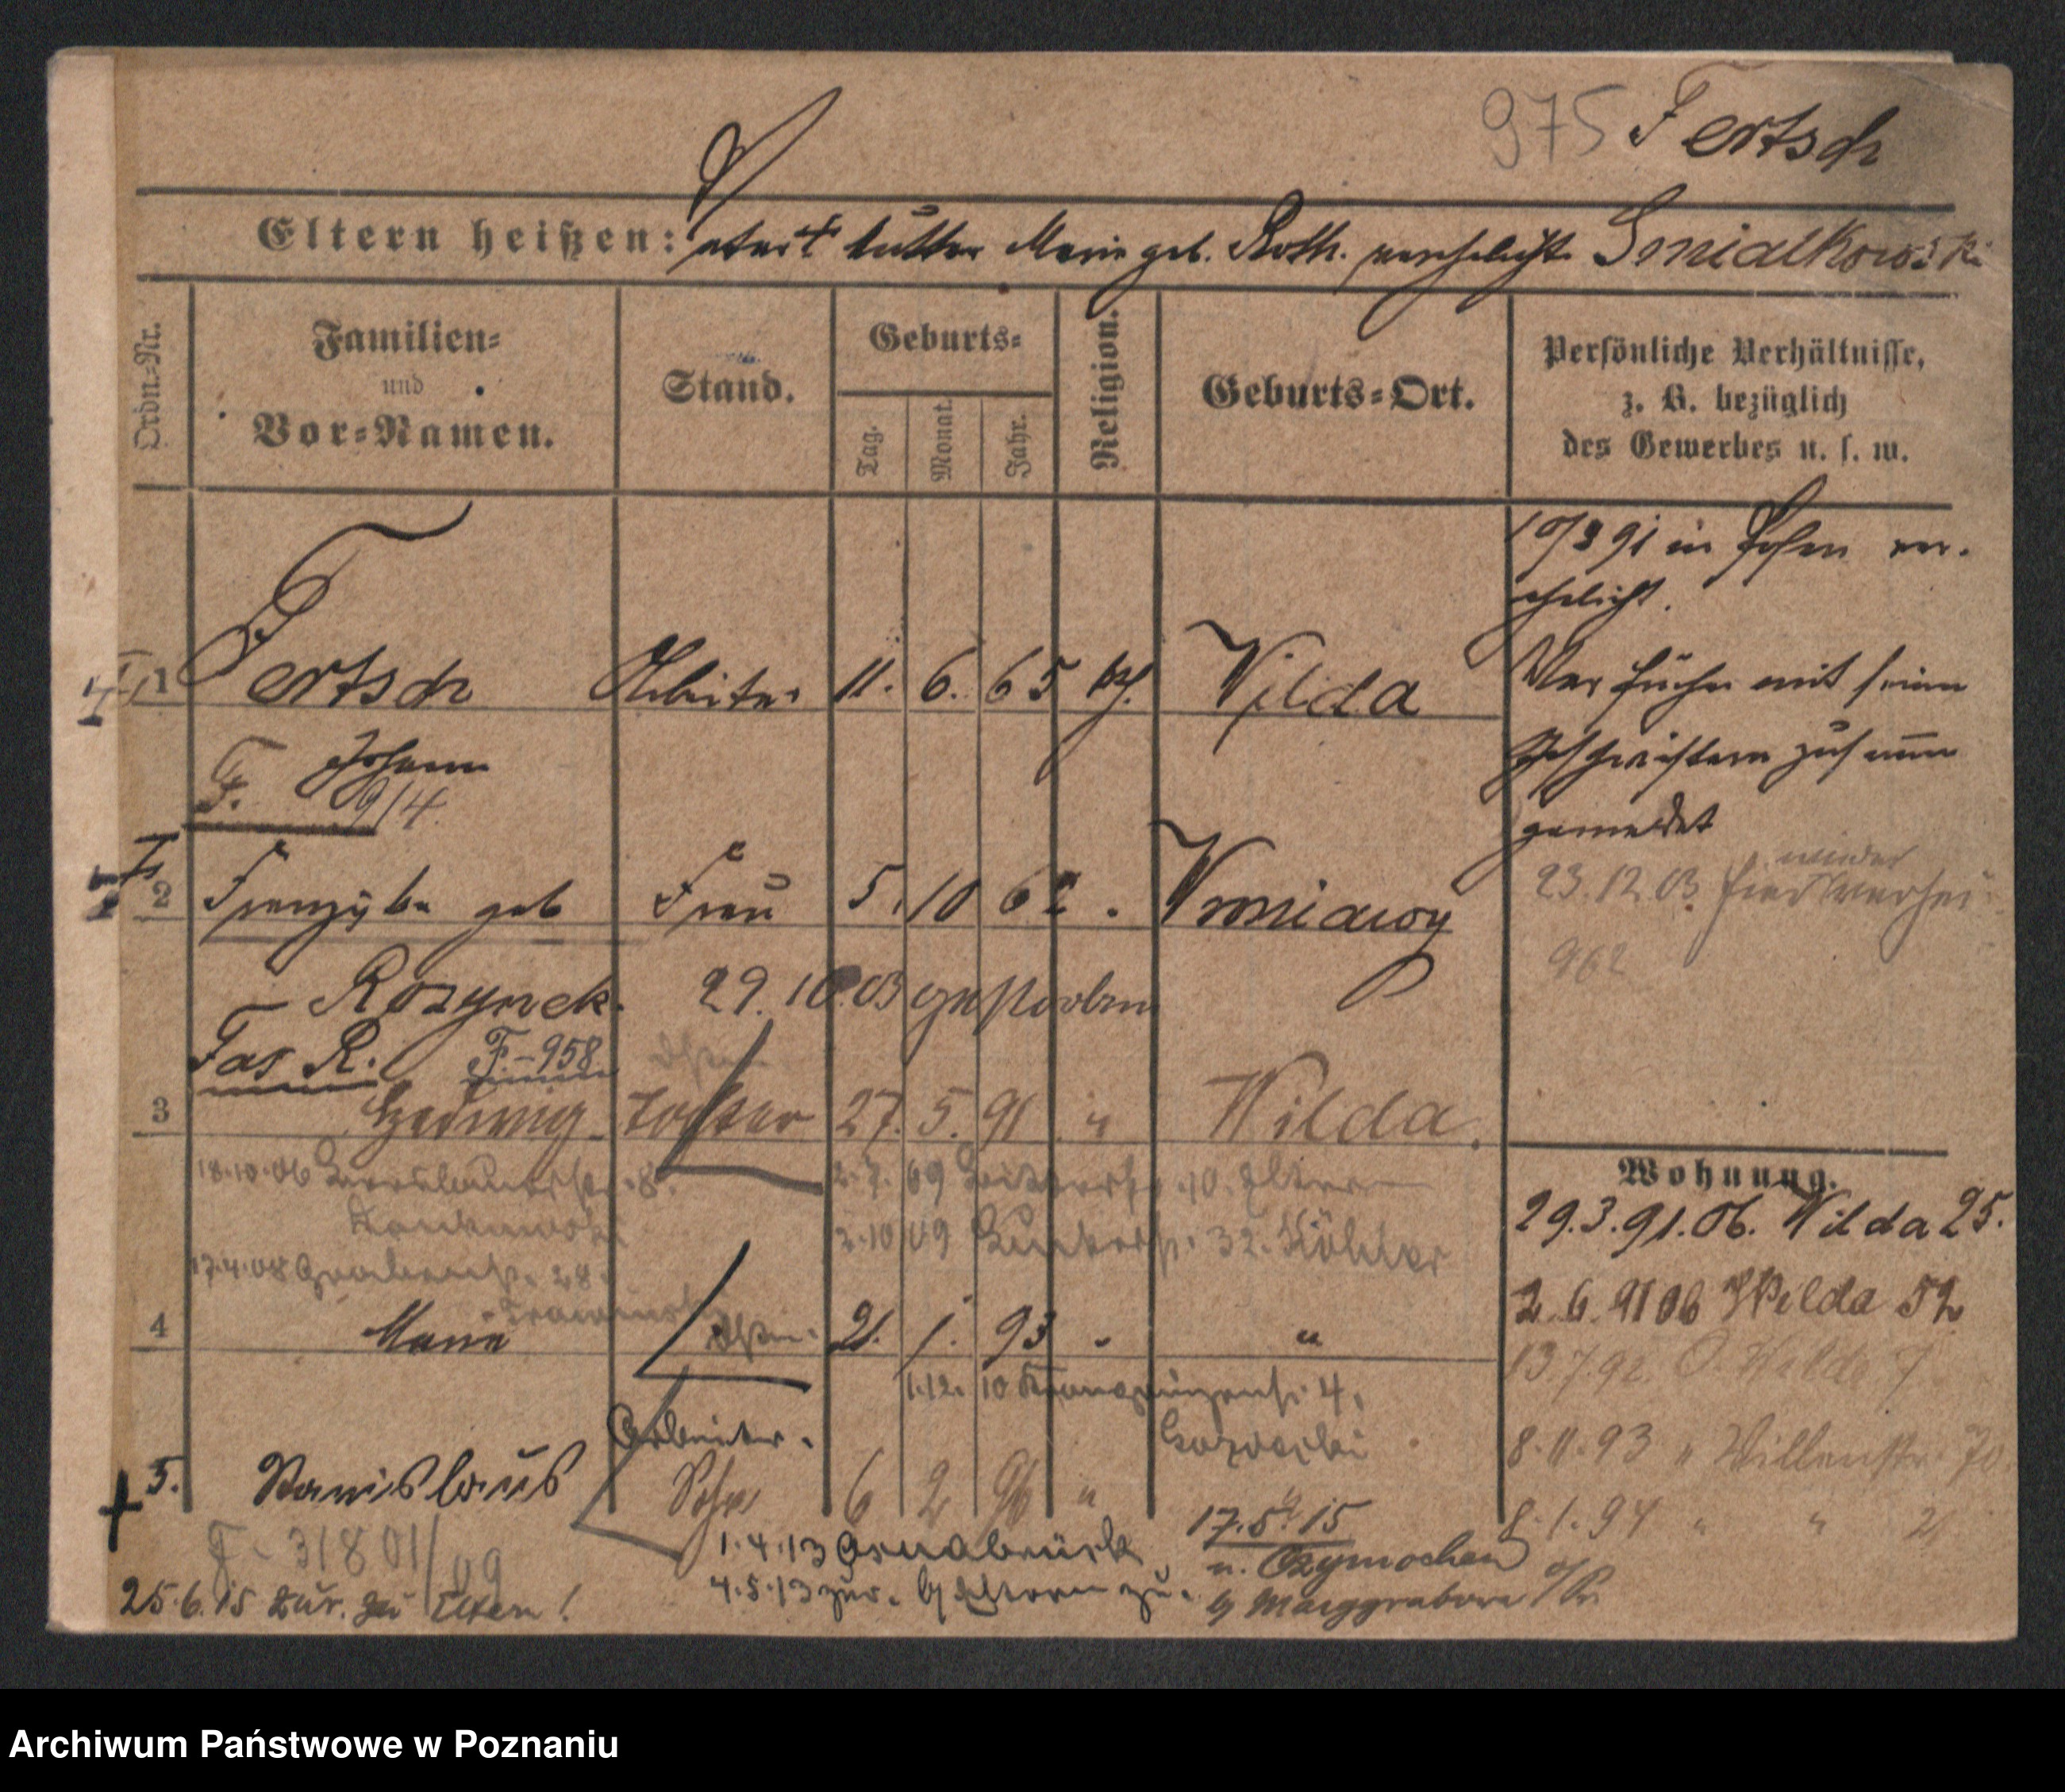 975 Fertsch
Eltern heißen: Mutter Marie geb. Roth. verehelicht Smialkowski
Ordn.-Nr.
Familien-
und
Vor-Namen.
Stand.
Geburts-
Tag.
Monat.
Jahr.
Religion.
Geburts-Ort.
Persönliche Verhältnisse,
z. B. bezüglich
des Gewerbes u. s. w.
10/3 91 in Posen ver-
ehelicht.
1 Fertsch Arbeiter 11. 6. 65 kth. Wilda
War früher mit seinen
Geschwistern zusammen
gemeldet
Johann
F. 9/4
2 Franziska geb Frau 5. 10 62 Wroniawy
wieder
23.12.03
962
Rozynek. 29.10.03 gestorben
Fas R. F-958
3 Hedwig Tochter 27. 5. 91 " Wilda.
Wohnung.
18.10.06 8.
2.7.09 10. Eltern
29.3.91. Ob. Wilda 25.
3.10.09 32. Köhler
17.4.08 28.
2.6.91 Ob Wilda 52
4 21. 1. 93 " "
13.7.92 O. Wilda 7
1.12.10 Kronprinzenstr. 4.
Arbeiter.
8.11.93 " 70
5. Stanislaus Sohn 6 2 96 " "
8.1.94 " " 21
F-31801/09
1.4.13 Osnabrück
17.5.15
n. Czymochen
4.5.13 zur. b/ Eltern zu.
b/ Marggrabowa O/Pr.
25.6.15 zur. zu Eltern!
Archiwum Państwowe w Poznaniu